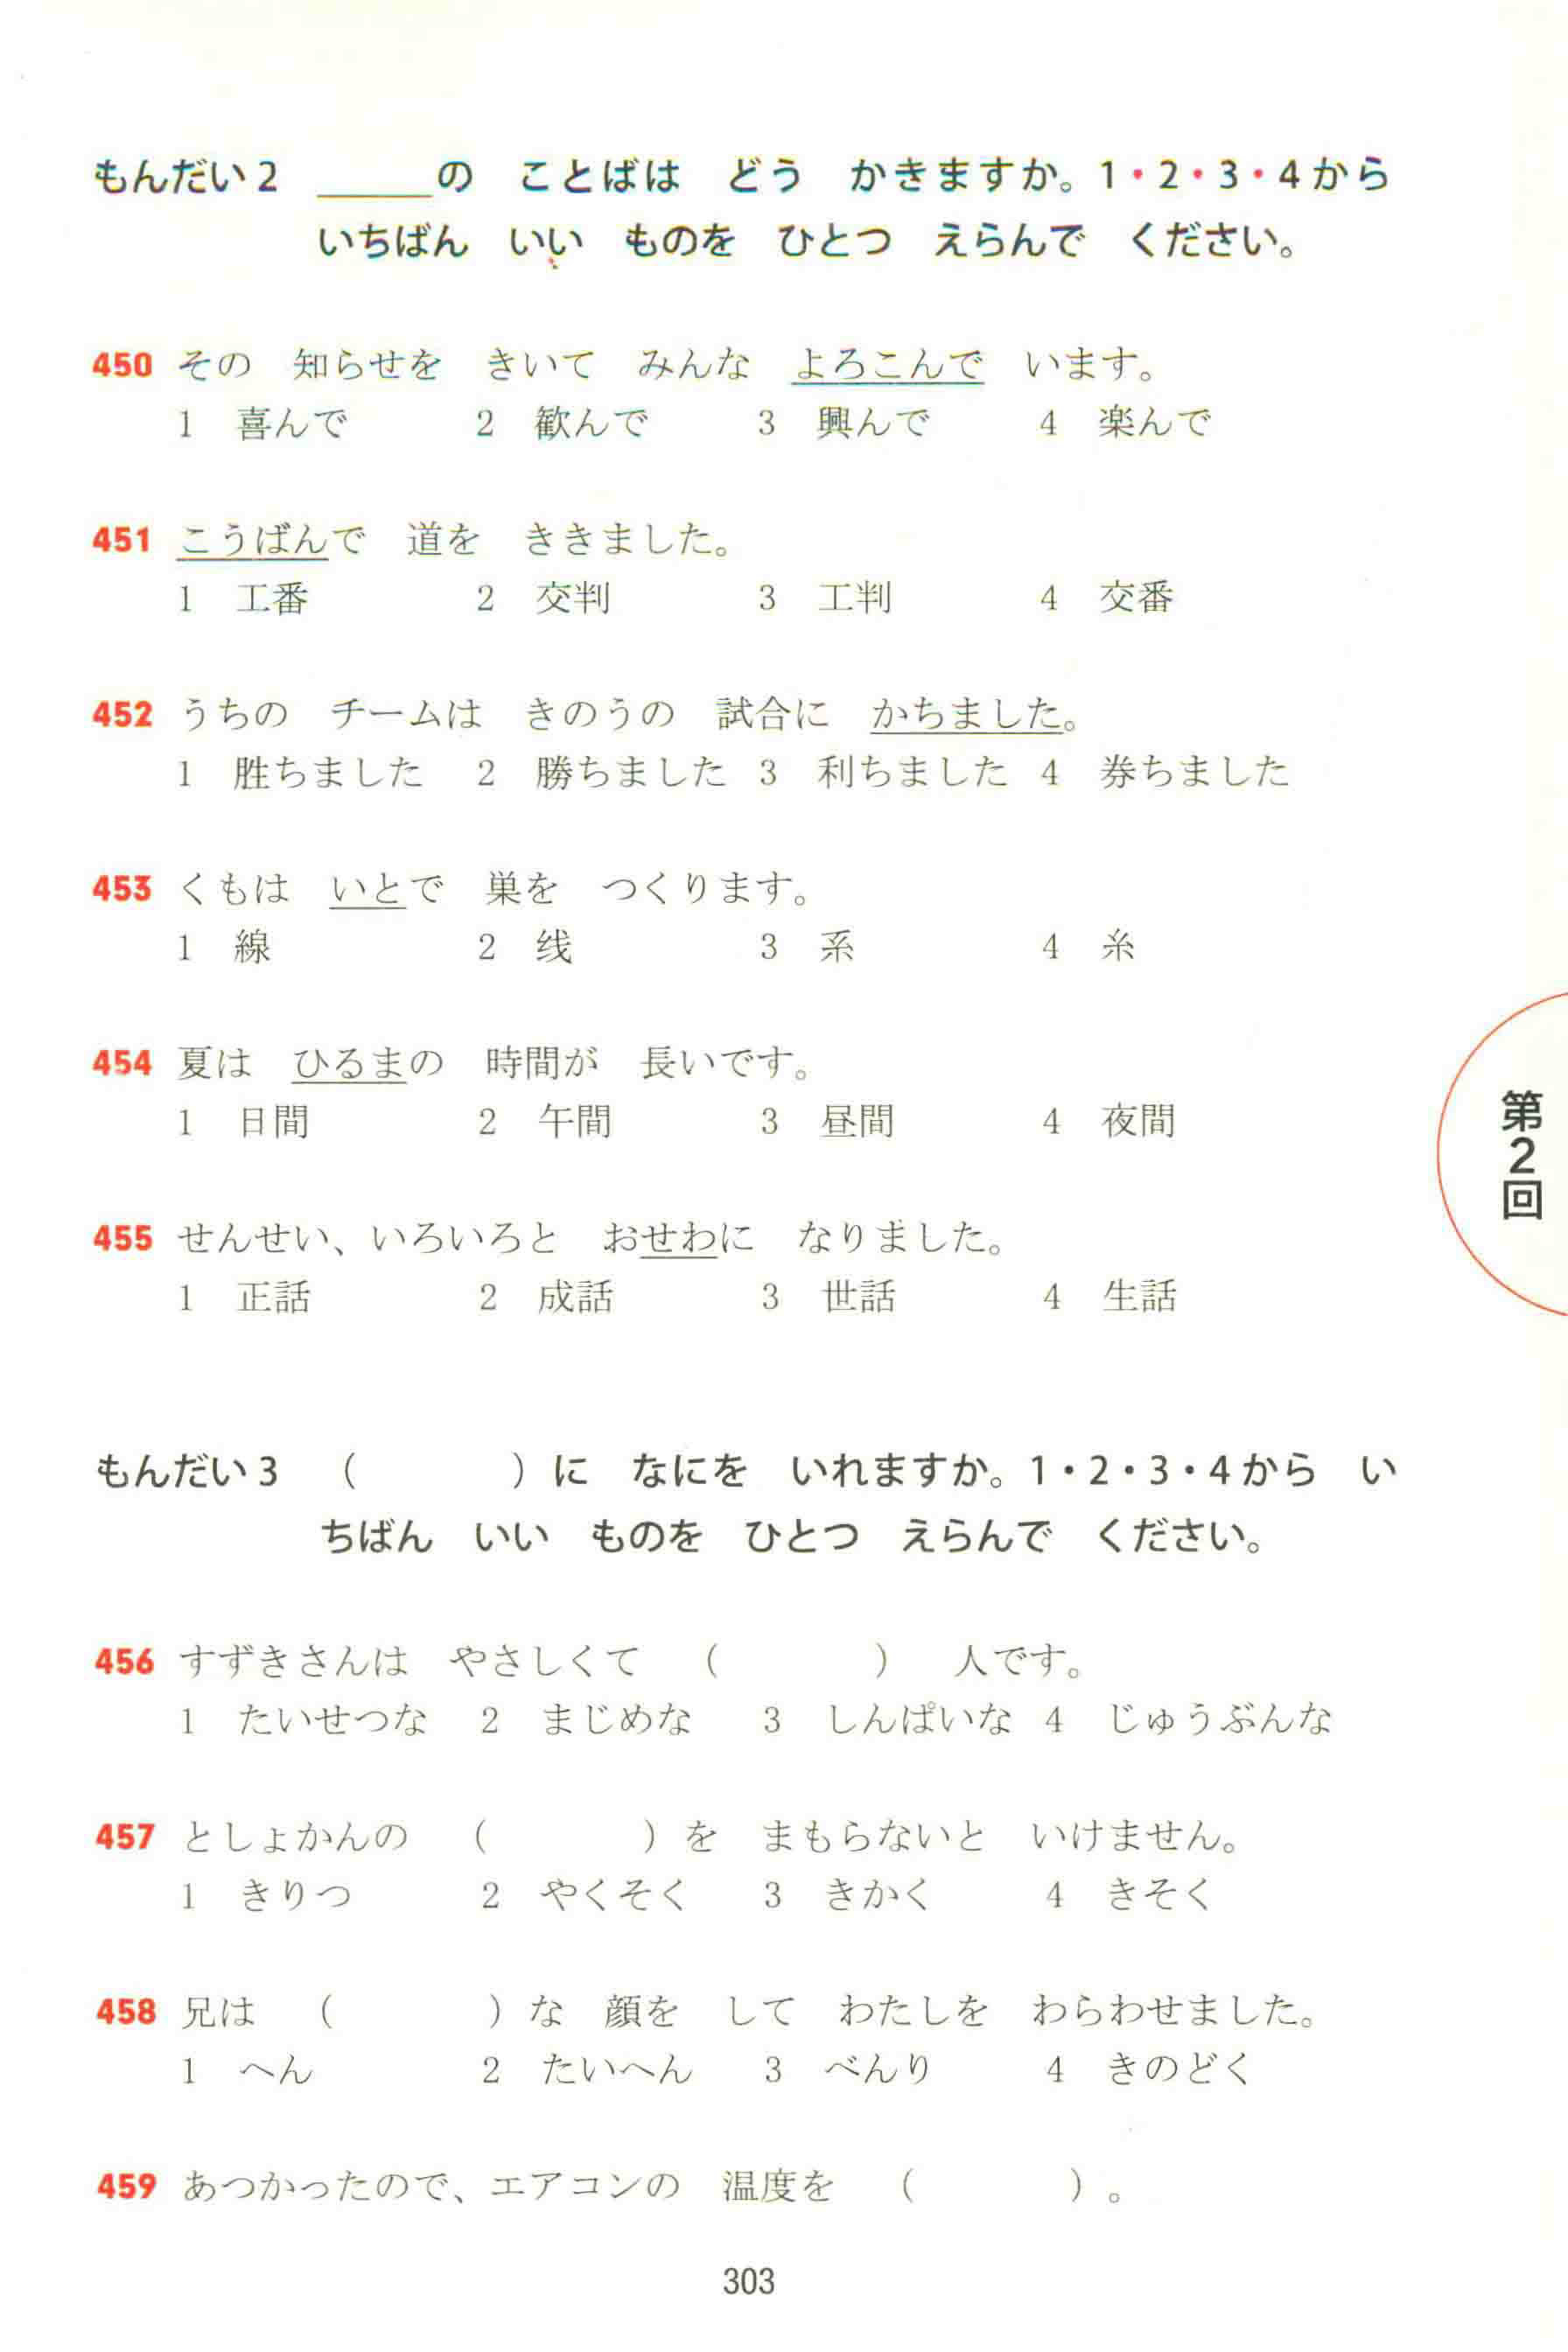 もんだい2　＿＿＿の　ことばは　どう　かきますか。1・2・3・4から
いちばん　いい　ものを　ひとつ　えらんで　ください。
450 その　知らせを　きいて　みんな　よろこんで　います。
1　喜んで　2　歓んで　3　興んで　4　楽んで
451 こうばんで　道を　ききました。
1　工番　2　交判　3　工判　4　交番
452 うちの　チームは　きのうの　試合に　かちました。
1　胜ちました　2　勝ちました　3　利ちました　4　券ちました
453 くもは　いとで　巣を　つくります。
1　線　2　线　3　系　4　糸
454 夏は　ひるまの　時間が　長いです。
1　日間　2　午間　3　昼間　4　夜間
455 せんせい、いろいろと　おせわに　なりました。
1　正話　2　成話　3　世話　4　生話
もんだい3　（　　　）に　なにを　いれますか。1・2・3・4から　い
ちばん　いい　ものを　ひとつ　えらんで　ください。
456 すずきさんは　やさしくて　（　　　）　人です。
1　たいせつな　2　まじめな　3　しんぱいな　4　じゅうぶんな
457 としょかんの　（　　　）を　まもらないと　いけません。
1　きりつ　2　やくそく　3　きかく　4　きそく
458 兄は　（　　　）な　顔を　して　わたしを　わらわせました。
1　へん　2　たいへん　3　べんり　4　きのどく
459 あつかったので、エアコンの　温度を　（　　　）。
303
第2回